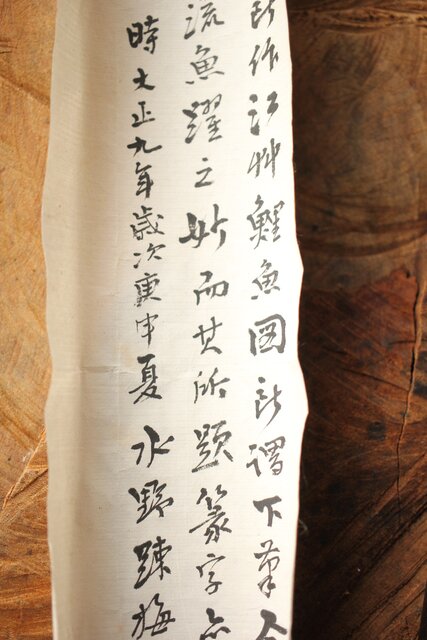 所作江艸鯉魚図所謂下筆
流魚躍之妙而其所題篆字
時大正九年歳次庚申夏水野踈梅